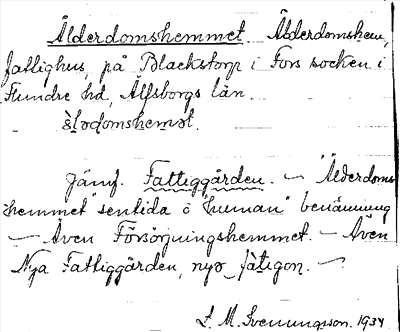 Ålderdomshemmet. Ålderdomshem,
fattighus, på Blackstorp i Fors socken i
Flundre hd, Älfsborgs län.
Jämf. Fattiggården. — Ålderdoms
hemmet sentida o "human" benämning
— Även Försörjningshemmet. — Även
Nya Fattiggården,
L. M. Svenungsson. 1934